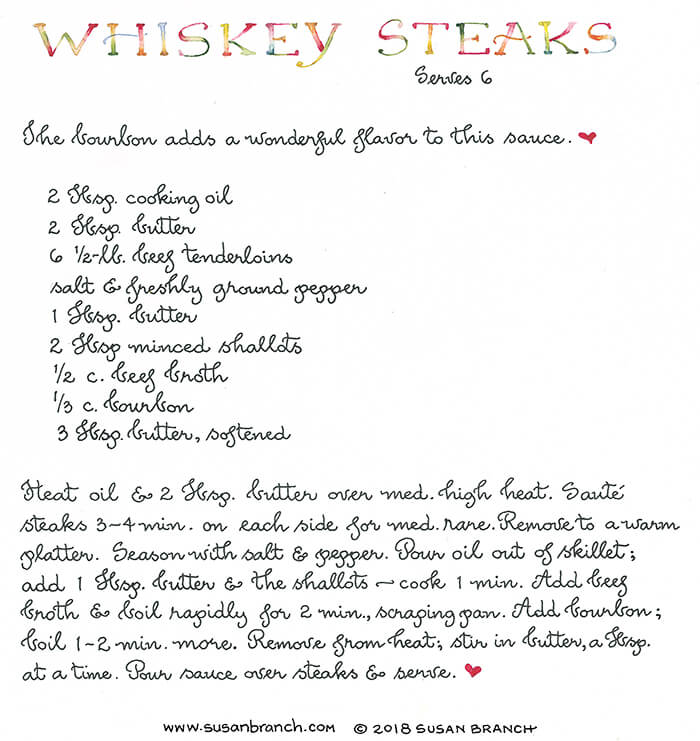 WHISKEY STEAKS
Serves 6
The bourbon adds a wonderful flavor to this sauce. ♥
2 Tbsp. cooking oil
2 Tbsp. butter
6 1/2-lb. beef tenderloins
salt & freshly ground pepper
1 Tbsp. butter
2 Tbsp minced shallots
1/2 c. beef broth
1/3 c. bourbon
3 Tbsp. butter, softened
Heat oil & 2 Tbsp. butter over med. high heat. Sauté
steaks 3~4 min. on each side for med. rare. Remove to a warm
platter. Season with salt & pepper. Pour oil out of skillet;
add 1 Tbsp. butter & the shallots ~ cook 1 min. Add beef
broth & boil rapidly for 2 min., scraping pan. Add bourbon;
boil 1~2 min. more. Remove from heat; stir in butter, a Tbsp.
at a time. Pour sauce over steaks & serve. ♥
www.susanbranch.com © 2018 SUSAN BRANCH